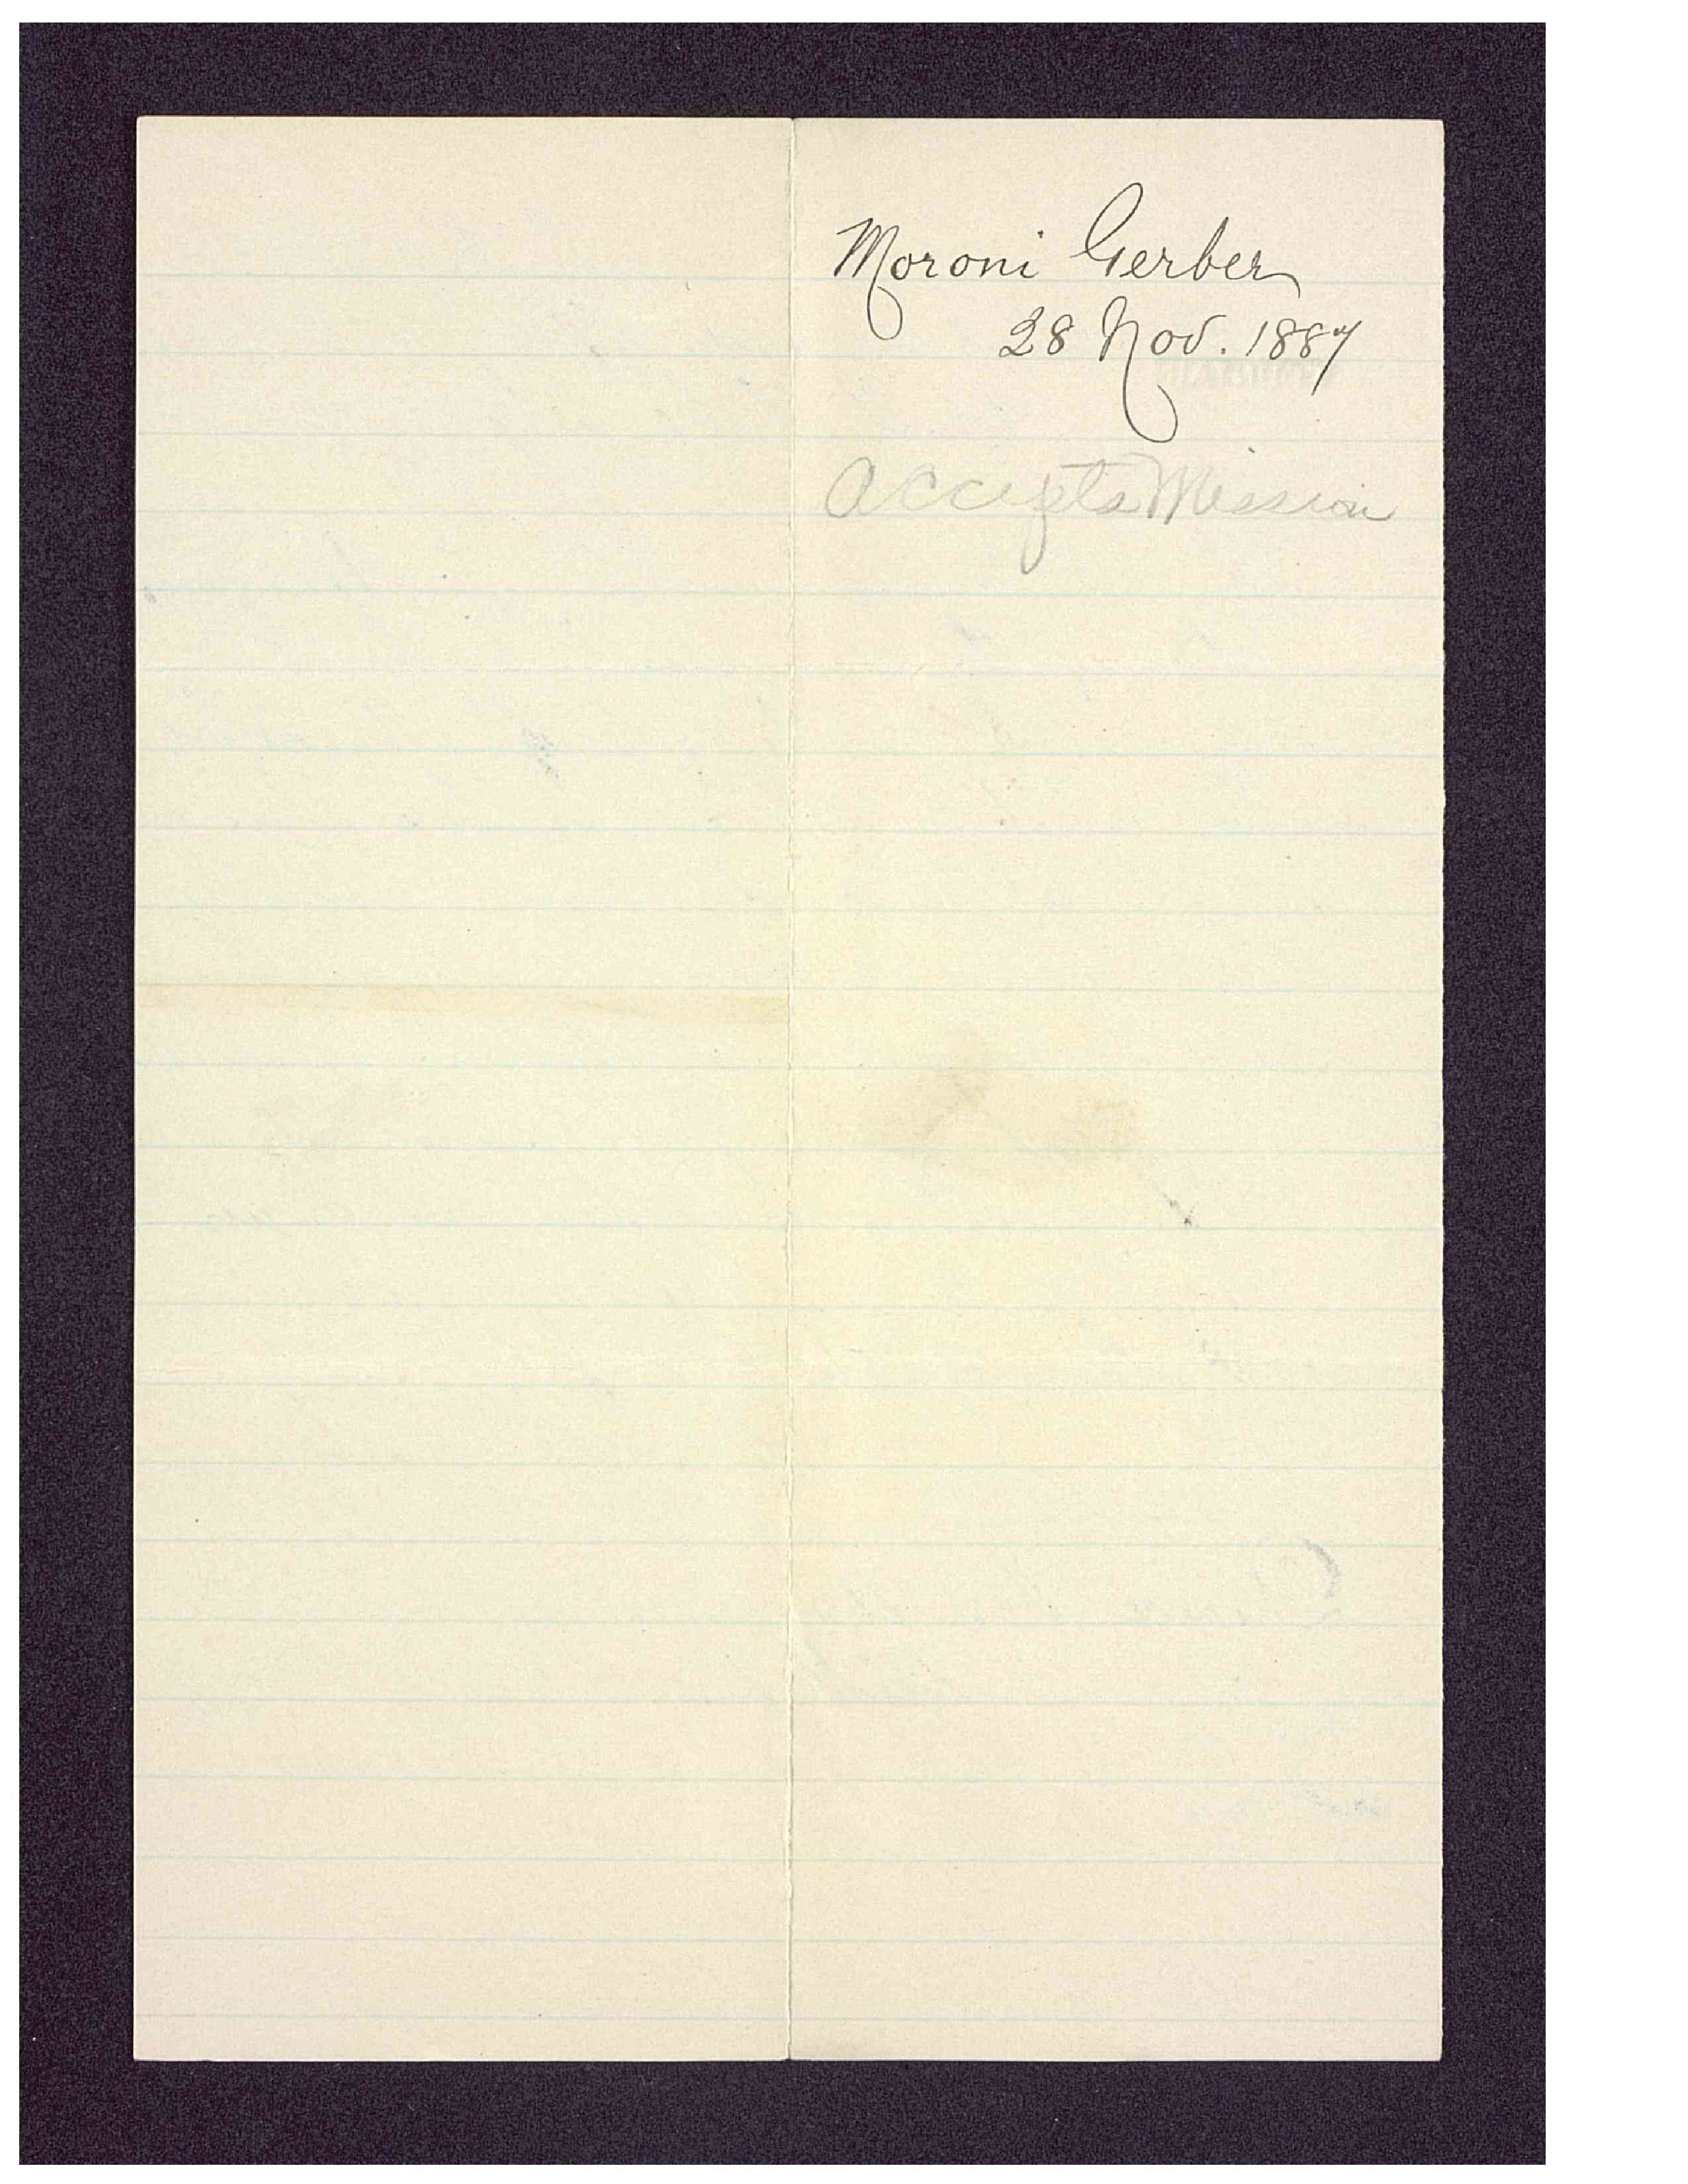 Moroni Gerber
28 Nov. 1887
Accepts Mission